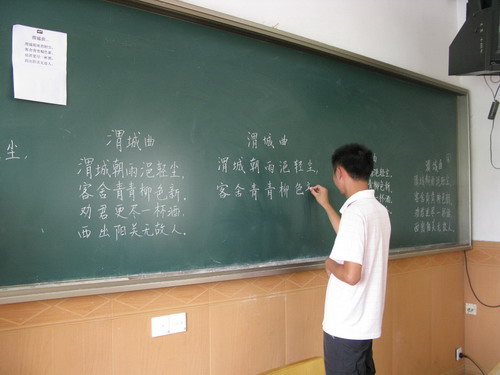 渭城曲
渭城朝雨浥轻尘,
客舍青青柳色新.
劝君更尽一杯酒,
西出阳关无故人.
渭城曲
渭城朝雨浥轻尘,
客舍青青柳色
尘,
渭城曲
渭城朝雨浥轻尘,
客舍青青柳色新.
劝君更尽一杯酒,
西出阳关无故人.
曲
浥轻尘,
柳色新.
杯酒,
故人.
渭城曲